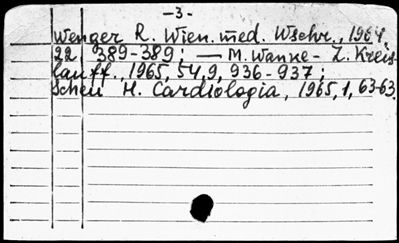 -3-
Wenger R. Wien. med. Wschr., 1964,
22, 389-389; — M. Wanke - Z. Kreis-
lauff., 1965, 54, 9, 936-937;
Scheu H. Cardiologia, 1965, 1, 63-63.